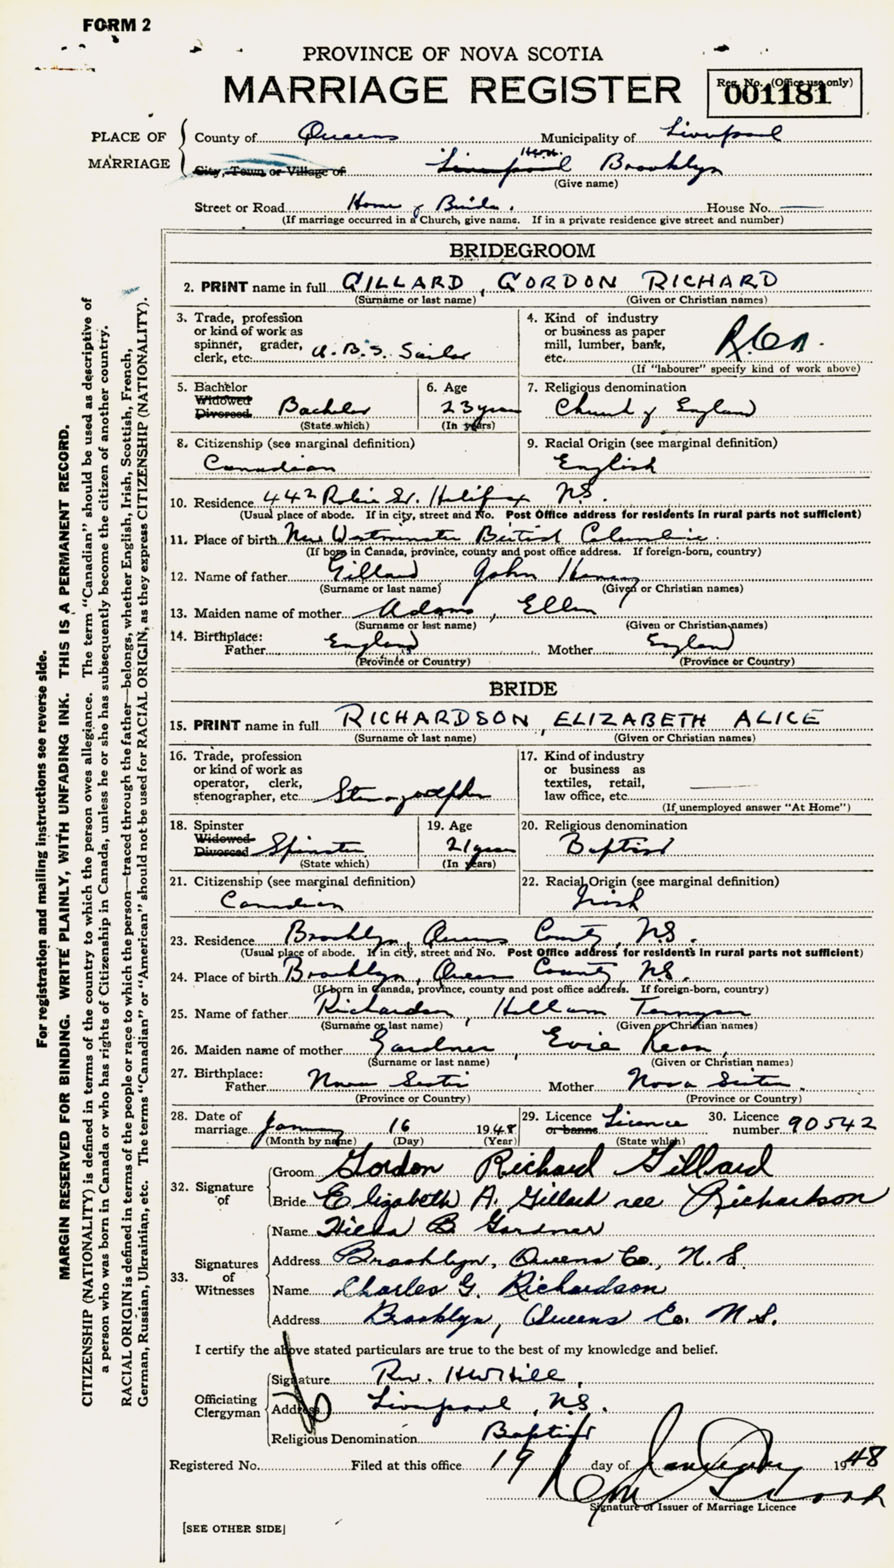 FORM 2
PROVINCE OF NOVA SCOTIA
MARRIAGE REGISTER
Reg. No. (Office use only)
001181
PLACE OF MARRIAGE
County of Queens Municipality of Liverpool
City, Town or Village of Liverpool Brooklyn
(Give name)
Street or Road Home of Bride. House No.
(If marriage occurred in a Church, give name. If in a private residence give street and number)
BRIDEGROOM
2. PRINT name in full GILLARD, GORDON RICHARD
(Surname or last name) (Given or Christian names)
3. Trade, profession or kind of work as spinner, grader, clerk, etc. A.B.S. Sailor
4. Kind of industry or business as paper mill, lumber, bank, etc.
(If "labourer" specify kind of work above)
5. Bachelor Widowed Divorced Bachelor
(State which)
6. Age 23 years
(In years)
7. Religious denomination Church of England
8. Citizenship (see marginal definition) Canadian
9. Racial Origin (see marginal definition) English
10. Residence 442 Robie St. Halifax NS.
(Usual place of abode. If in city, street and No. Post Office address for residents in rural parts not sufficient)
11. Place of birth New Westminster British Columbia.
(If born in Canada, province, county and post office address. If foreign-born, country)
12. Name of father Gillard John Henry
(Surname or last name) (Given or Christian names)
13. Maiden name of mother Adams, Ellen
(Surname or last name) (Given or Christian names)
14. Birthplace:
Father England Mother England
(Province or Country) (Province or Country)
BRIDE
15. PRINT name in full RICHARDSON, ELIZABETH ALICE
(Surname or last name) (Given or Christian names)
16. Trade, profession or kind of work as operator, clerk, stenographer, etc. Stenographer
17. Kind of industry or business as textiles, retail, law office, etc.
(If unemployed answer "At Home")
18. Spinster Widowed Divorced Spinster
(State which)
19. Age 21 years
(In years)
20. Religious denomination Baptist
21. Citizenship (see marginal definition) Canadian
22. Racial Origin (see marginal definition) Irish
23. Residence Brooklyn, Queens County, NS.
(Usual place of abode. If in city, street and No. Post Office address for residents in rural parts not sufficient)
24. Place of birth Brooklyn, Queens County, NS.
(If born in Canada, province, county and post office address. If foreign-born, country)
25. Name of father Richardson,
(Surname or last name) (Given or Christian names)
26. Maiden name of mother Gardner, Evie
(Surname or last name) (Given or Christian names)
27. Birthplace:
Father Nova Scotia Mother Nova Scotia.
(Province or Country) (Province or Country)
28. Date of marriage January 16 1948
(Month by name) (Day) (Year)
29. Licence or banns Licence
(State which)
30. Licence number 90542
32. Signature of
Groom Gordon Richard Gillard
Bride Elizabeth A. Gillard nee Richardson
33. Signatures of Witnesses
Name Hilda B Gardner
Address Brooklyn, Queens Co., N.S.
Name Charles G. Richardson
Address Brooklyn, Queens Co. N.S.
I certify the above stated particulars are true to the best of my knowledge and belief.
Officiating Clergyman
Signature Rev. H W Hill
Address Liverpool, NS.
Religious Denomination Baptist
Registered No. Filed at this office 19 day of January 1948
Signature of Issuer of Marriage Licence
[SEE OTHER SIDE]
For registration and mailing instructions see reverse side.
MARGIN RESERVED FOR BINDING. WRITE PLAINLY, WITH UNFADING INK. THIS IS A PERMANENT RECORD.
CITIZENSHIP (NATIONALITY) is defined in terms of the country to which the person owes allegiance. The term "Canadian" should be used as descriptive of
a person who was born in Canada or who has rights of Citizenship in Canada, unless he or she has subsequently become the citizen of another country.
RACIAL ORIGIN is defined in terms of the people or race to which the person—traced through the father—belongs, whether English, Irish, Scottish, French,
German, Russian, Ukrainian, etc. The terms "Canadian" or "American" should not be used for RACIAL ORIGIN, as they express CITIZENSHIP (NATIONALITY).